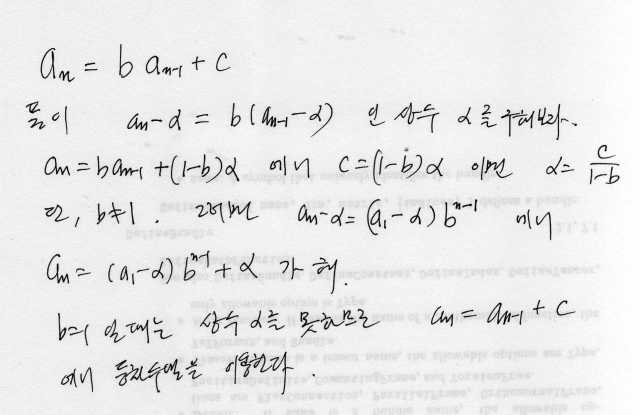 aₙ = b aₙ₋₁ + c
풀이 aₙ-α = b(aₙ₋₁-α) 인 상수 α를 구해보라.
aₙ = baₙ₋₁ + (1-b)α 에서 c=(1-b)α 이면 α= c/(1-b)
단, b≠1. 그러면 aₙ-α=(a₁-α)bⁿ⁻¹ 에서
aₙ = (a₁-α)bⁿ⁻¹+α 가 해.
b=1 일 때는 상수 α를 못구하므로 aₙ = aₙ₋₁ + c
에서 등차수열을 이용한다.